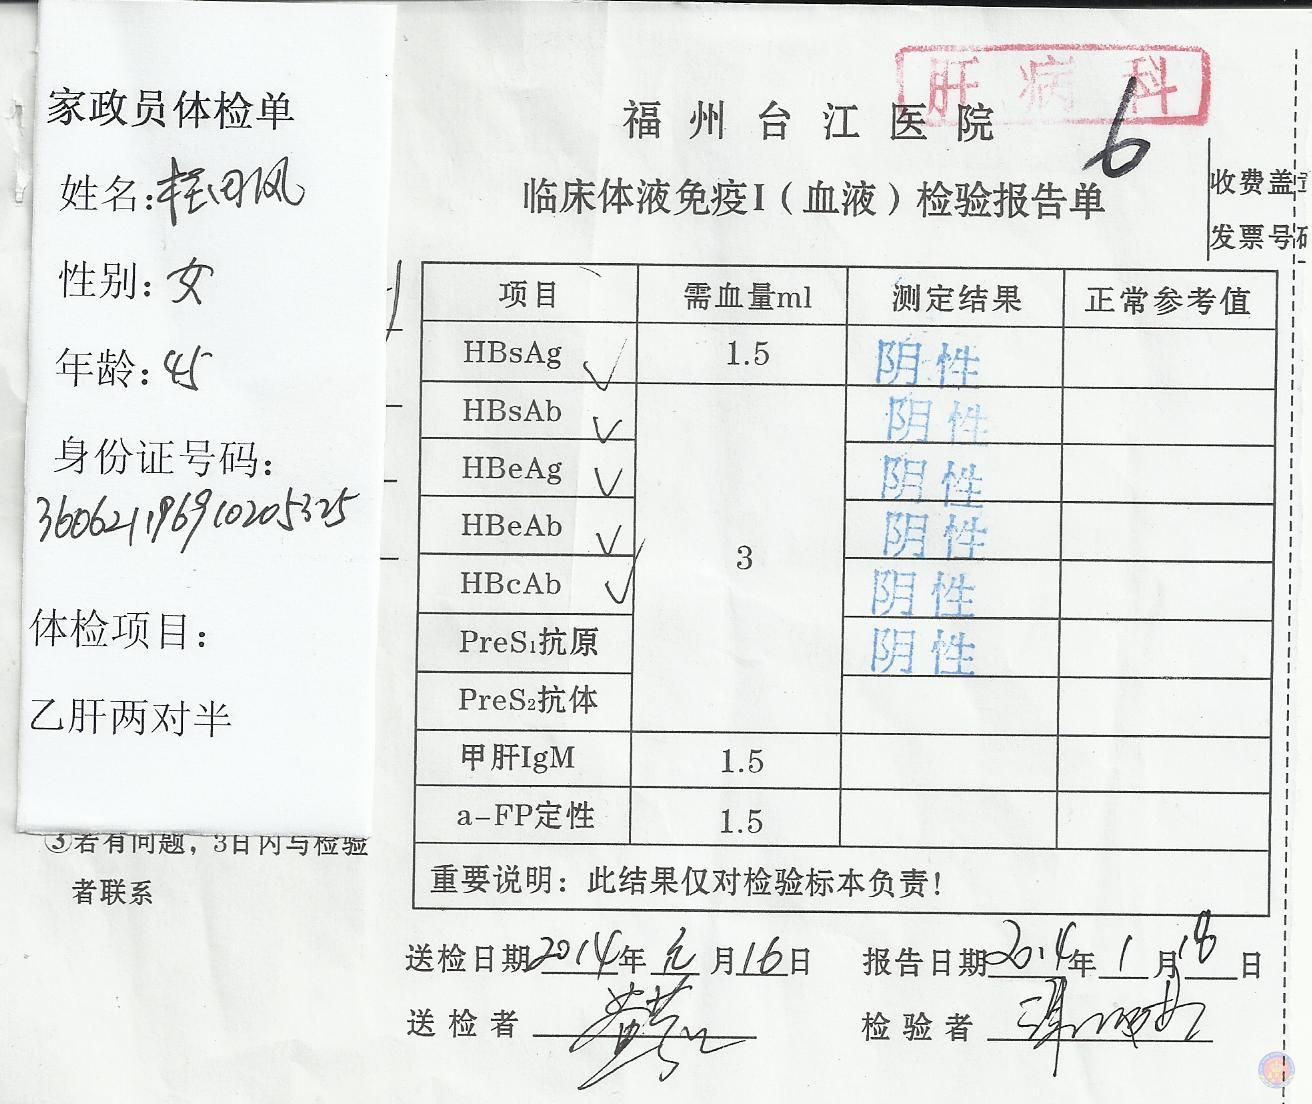 家政员体检单
姓名:程园凤
性别:女
年龄:45
身份证号码:
360621196910205325
体检项目:
乙肝两对半
③若有问题，3日内与检验
者联系
肝病科
6
福州台江医院
临床体液免疫I（血液）检验报告单
收费盖章
发票号码
项目 需血量ml 测定结果 正常参考值
HBsAg ✓ 1.5 阴性
HBsAb ✓ 阴性
HBeAg ✓ 阴性
HBeAb ✓ 3 阴性
HBcAb ✓ 阴性
PreS₁抗原 阴性
PreS₂抗体
甲肝IgM 1.5
a-FP定性 1.5
重要说明：此结果仅对检验标本负责!
送检日期2014年元月16日 报告日期2014年1月18日
送检者 检验者